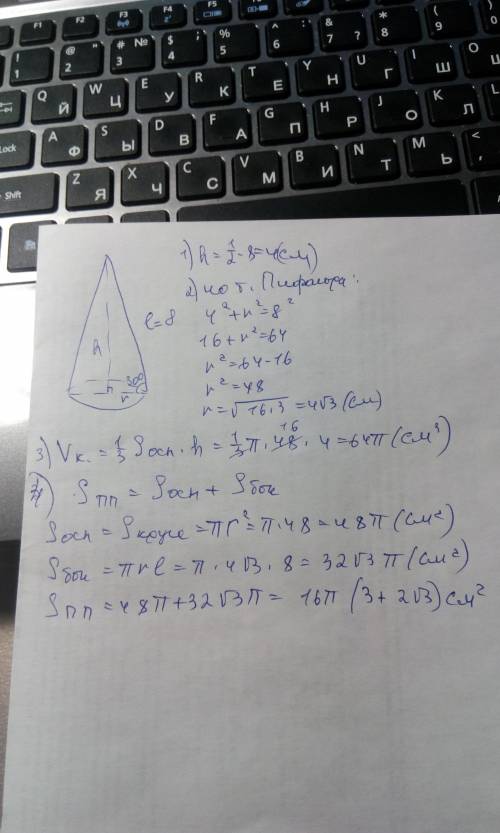 F1 F2 F3 F4 F5 F6 F7 F8 F9
! 1 @ 2 " # № 3 $ ; 4 % 5 ^ : 6 & 7 ? * 8 ( 9
Q Й W Ц E У R К T Е Y Н U Г I Ш O
Lock A Ф S Ы D В F А G П H Р J О K Л L
Shift Z Я X Ч C С V М B И N Т M Ь < Б
1) h = 1/2 · 8 = 4 (см)
2) по т. Пифагора:
4² + r² = 8²
16 + r² = 64
r² = 64 - 16
r² = 48
r = √16·3 = 4√3 (см)
l = 8
h
30°
r
3) Vк. = 1/3 Sосн · h = 1/3 π · 48 16 · 4 = 64π (см³)
4) Sпп = Sосн + Sбок
Sосн = Sкруга = πr² = π · 48 = 48π (см²)
Sбок = πrl = π · 4√3 · 8 = 32√3 π (см²)
Sпп = 48π + 32√3π = 16π (3 + 2√3) см²